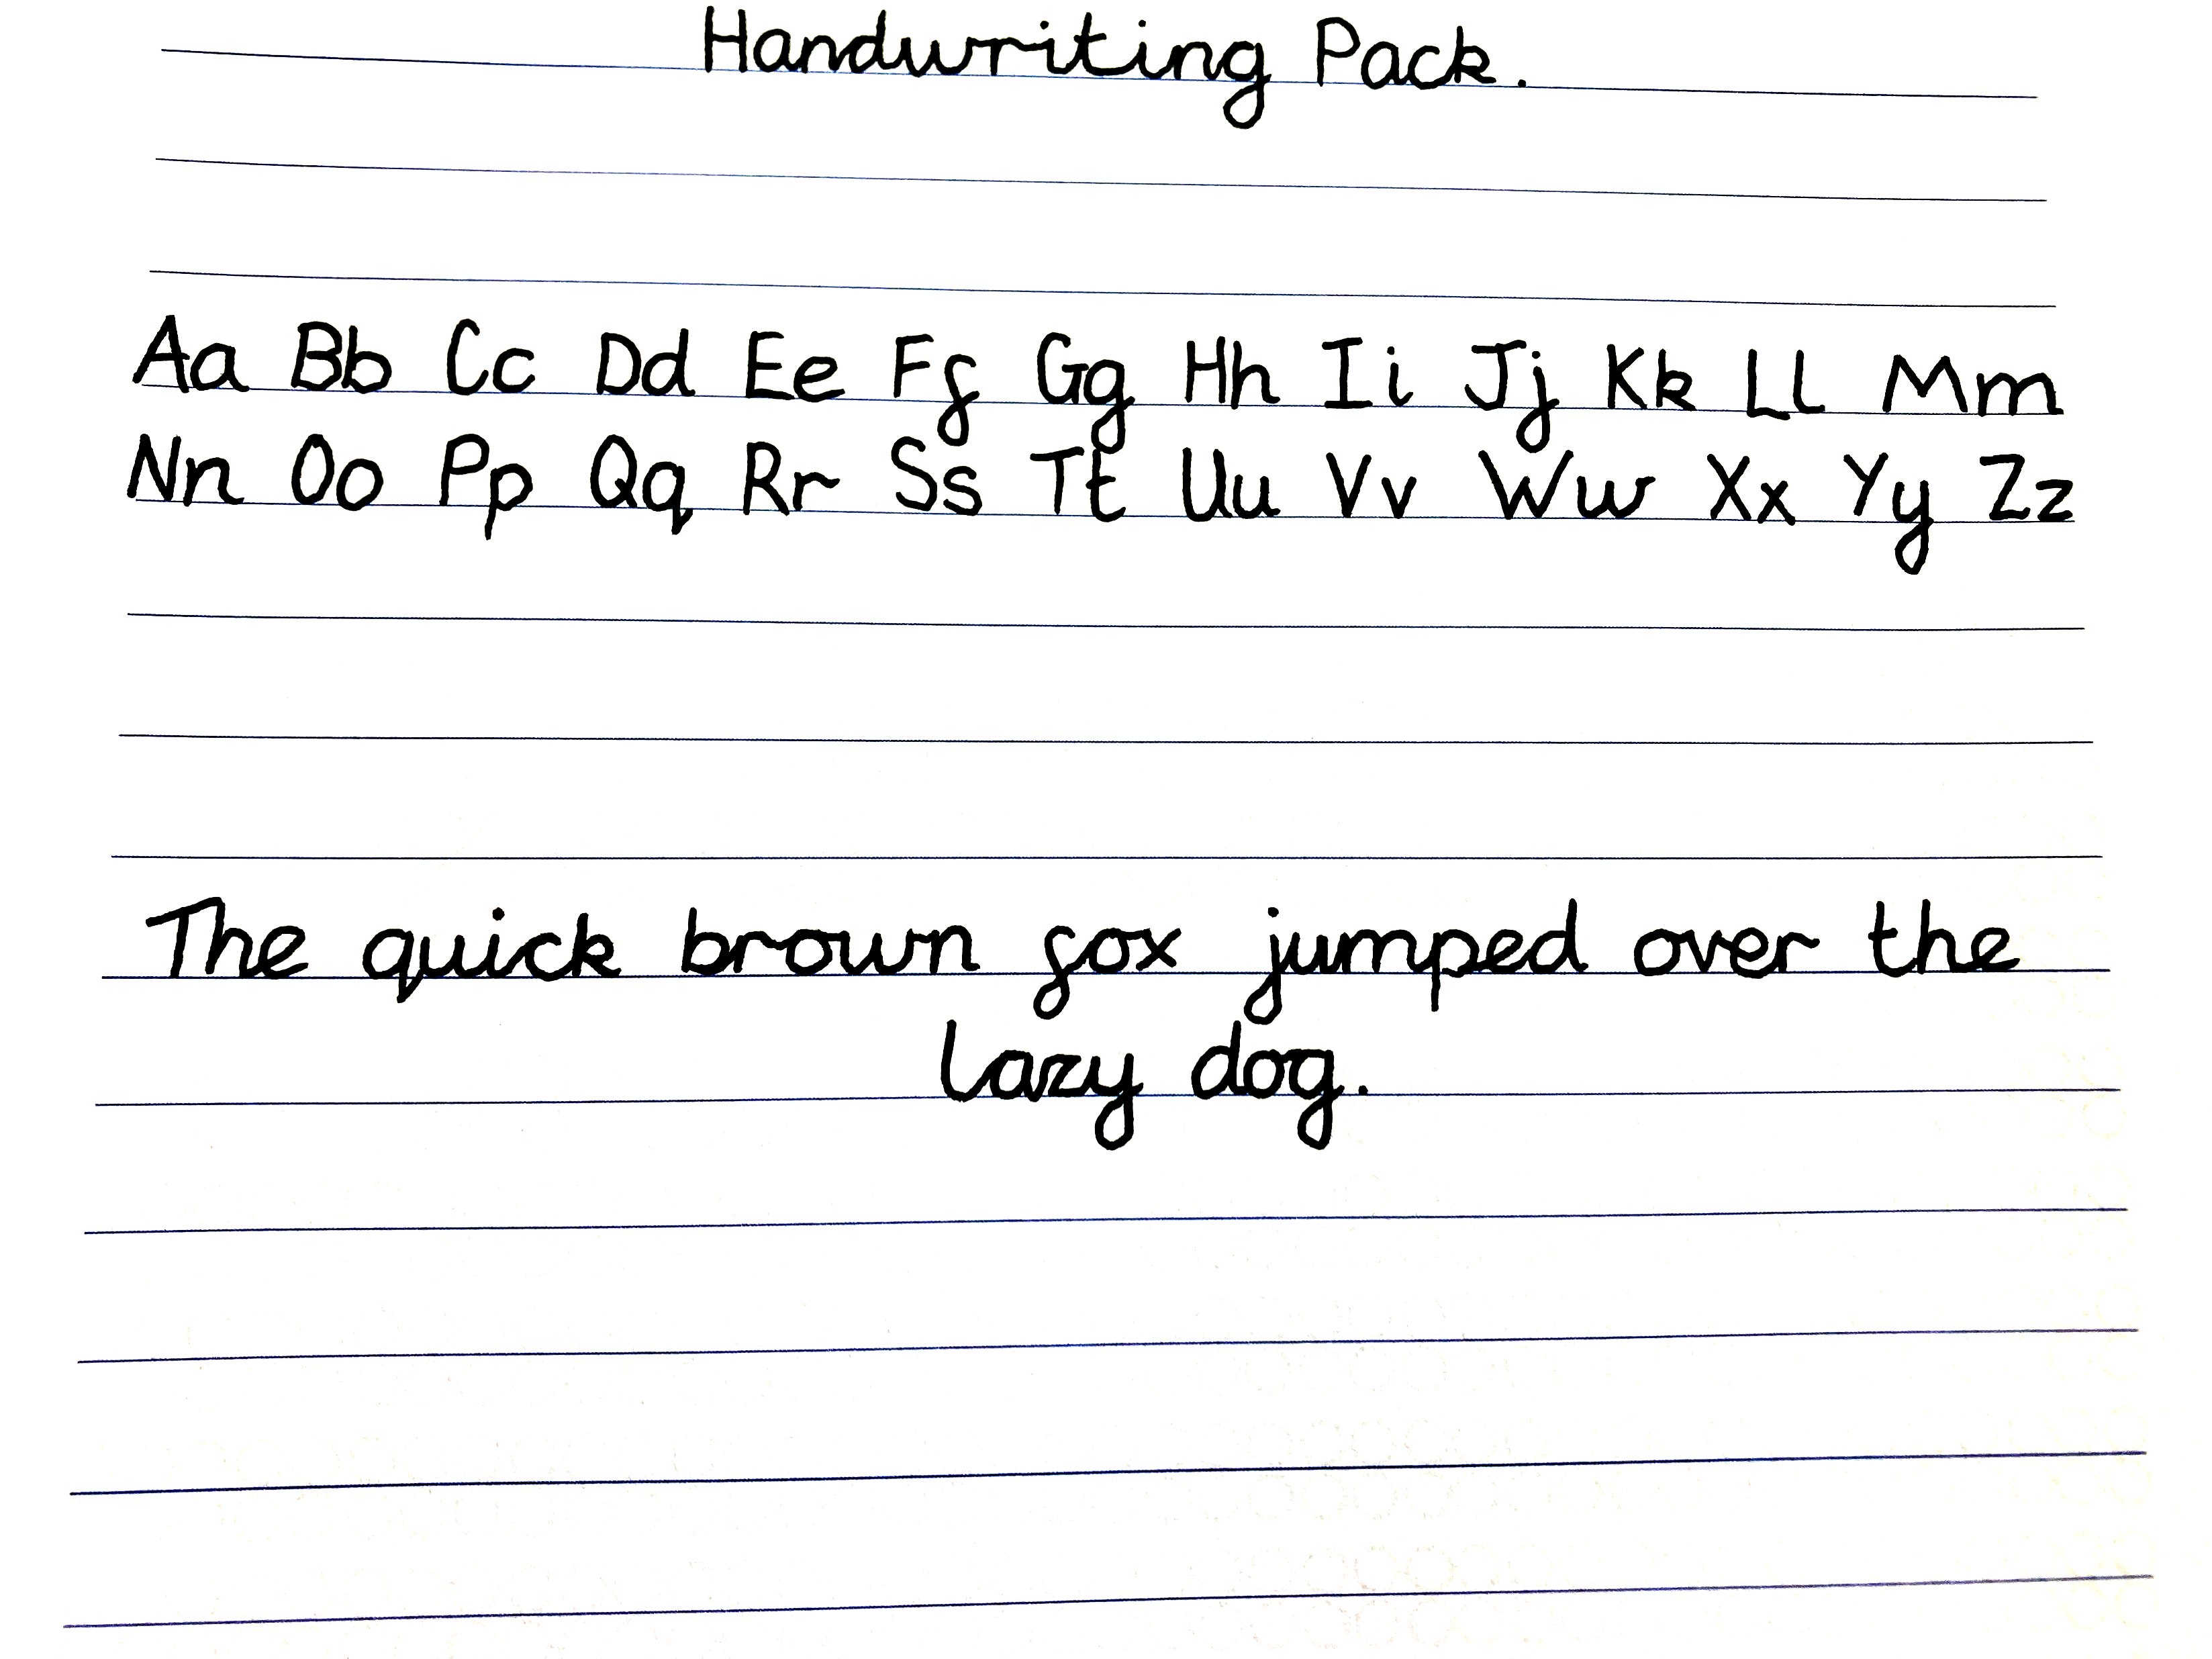 Handwriting Pack.
Aa Bb Cc Dd Ee Ff Gg Hh Ii Jj Kk Ll Mm
Nn Oo Pp Qq Rr Ss Tt Uu Vv Ww Xx Yy Zz
The quick brown fox jumped over the
lazy dog.